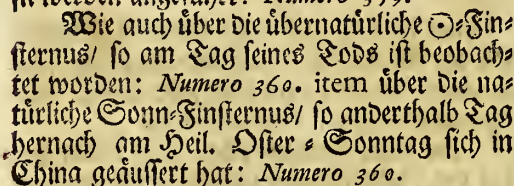 Wie auch über die übernatürliche ☉⸗Fin⸗
sternus/ so am Tag seines Tods ist beobach⸗
tet worden: Numero 360. item über die na⸗
türliche Sonn⸗Finsternus/ so anderthalb Tag
hernach am Heil. Oster⸗Sonntag sich in
China geäussert hat: Numero 360.